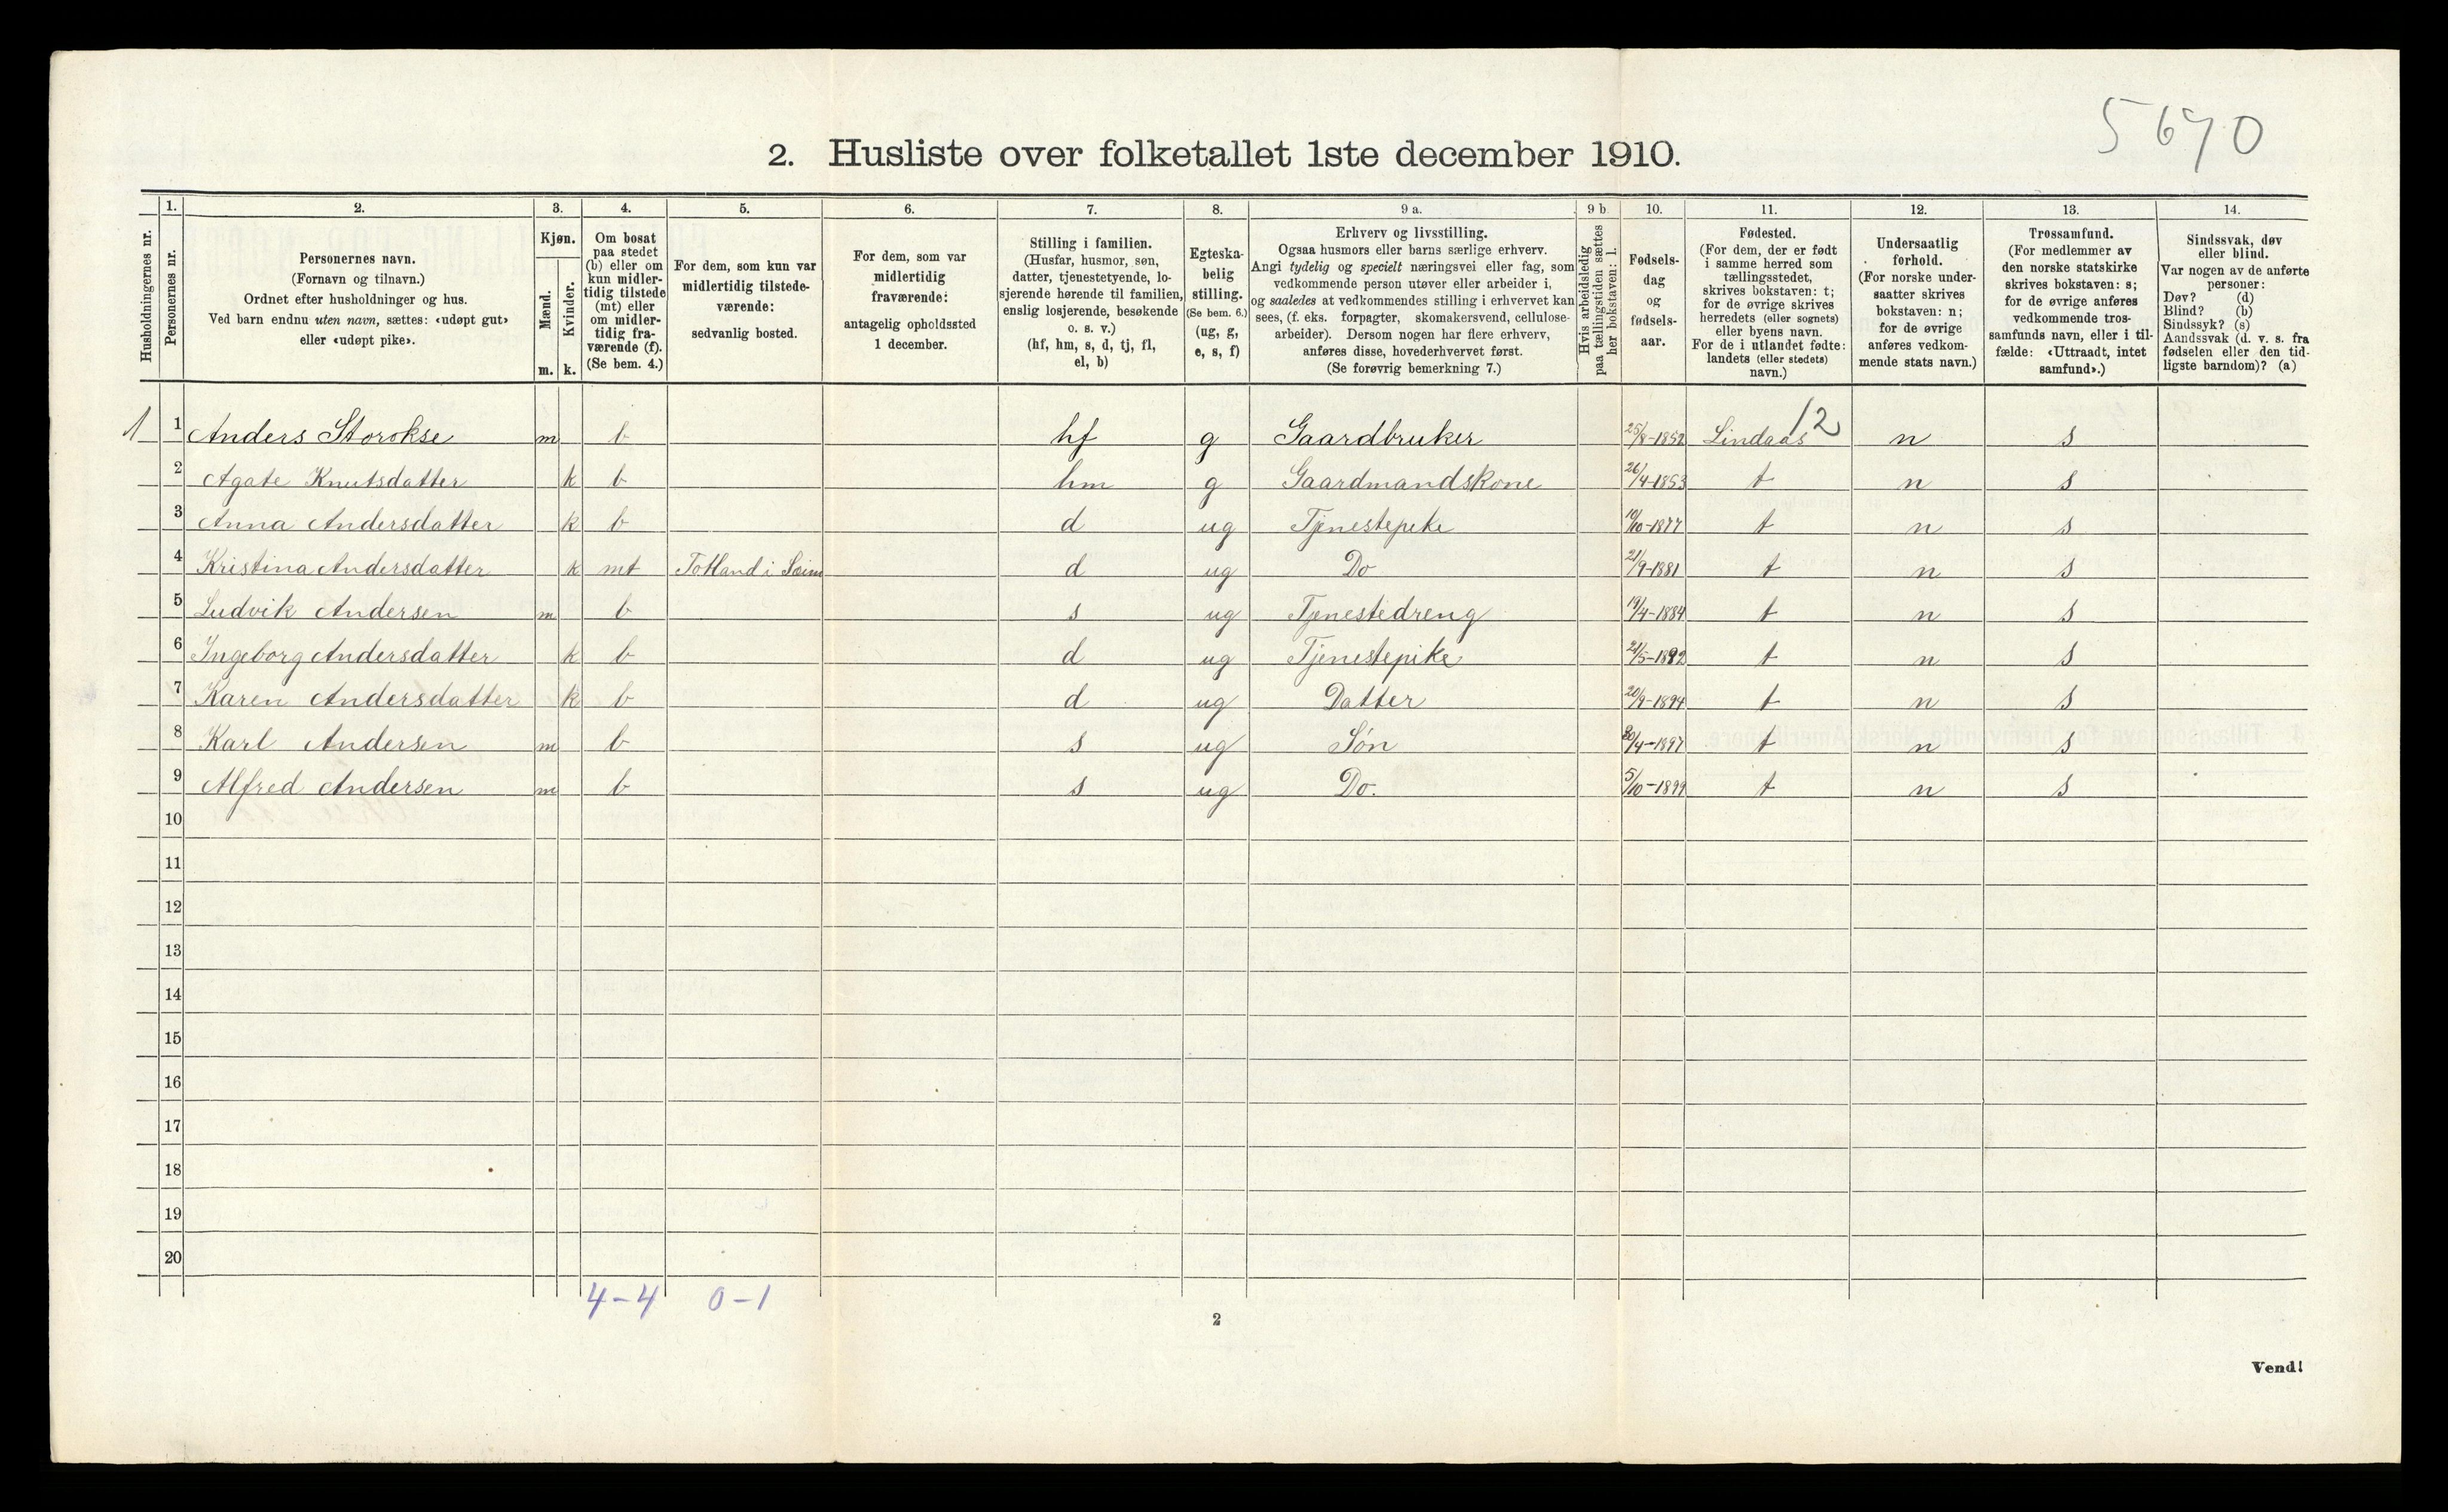 5670
2. Husliste over folketallet 1ste december 1910.
Husholdningernes nr.
1.
Personernes nr.
2.
Personernes navn.
(Fornavn og tilnavn.)
Ordnet efter husholdninger og hus.
Ved barn endnu uten navn, sættes: «udøpt gut»
eller «udøpt pike».
3.
Kjøn.
Mænd.
Kvinder.
m. k.
4.
Om bosat
paa stedet
(b) eller om
kun midler-
tidig tilstede
(mt) eller
om midler-
tidig fra-
værende (f).
(Se bem. 4.)
5.
For dem, som kun var
midlertidig tilstede-
værende:
sedvanlig bosted.
6.
For dem, som var
midlertidig
fraværende:
antagelig opholdssted
1 december.
7.
Stilling i familien.
(Husfar, husmor, søn,
datter, tjenestetyende, lo-
sjerende hørende til familien,
enslig losjerende, besøkende
o. s. v.)
(hf, hm, s, d, tj, fl,
el, b)
8.
Egteska-
belig
stilling.
(Se bem. 6.)
(ug, g,
e, s, f)
9 a.
Erhverv og livsstilling.
Ogsaa husmors eller barns særlige erhverv.
Angi tydelig og specielt næringsvei eller fag, som
vedkommende person utøver eller arbeider i,
og saaledes at vedkommendes stilling i erhvervet kan
sees, (f. eks. forpagter, skomakersvend, cellulose-
arbeider). Dersom nogen har flere erhverv,
anføres disse, hovederhvervet først.
(Se forøvrig bemerkning 7.)
9 b
Hvis arbeidsledig
paa tællingstiden sættes
her bokstaven: l.
10.
Fødsels-
dag
og
fødsels-
aar.
11.
Fødested.
(For dem, der er født
i samme herred som
tællingsstedet,
skrives bokstaven: t;
for de øvrige skrives
herredets (eller sognets)
eller byens navn.
For de i utlandet fødte:
landets (eller stedets)
navn.)
12.
Undersaatlig
forhold.
(For norske under-
saatter skrives
bokstaven: n;
for de øvrige
anføres vedkom-
mende stats navn.)
13.
Trossamfund.
(For medlemmer av
den norske statskirke
skrives bokstaven: s;
for de øvrige anføres
vedkommende tros-
samfunds navn, eller i til-
fælde: «Uttraadt, intet
samfund».)
14.
Sindssvak, døv
eller blind.
Var nogen av de anførte
personer:
Døv? (d)
Blind? (b)
Sindssyk? (s)
Aandssvak (d. v. s. fra
fødselen eller den tid-
ligste barndom)? (a)
1 1 Anders Storokse m b hf g Gaardbruker 25/8-1852 Lindaas 12 n s
2 Agate Knutsdatter k b hm g Gaardmandskone 26/4-1853 t n s
3 Anna Andersdatter k b d ug Tjenestepike 10/10-1877 t n s
4 Kristina Andersdatter k mt Totland i Sæim d ug Do 21/9-1881 t n s
5 Ludvik Andersen m b s ug Tjenestedreng 19/4-1884 t n s
6 Ingeborg Andersdatter k b d ug Tjenestepike 21/5-1892 t n s
7 Karen Andersdatter k b d ug Datter 20/9-1894 t n s
8 Karl Andersen m b s ug Søn 30/4-1897 t n s
9 Alfred Andersen m b s ug Do. 5/10-1899 t n s
10
11
12
13
14
15
16
17
18
19
20
4-4 0-1
2
Vend!